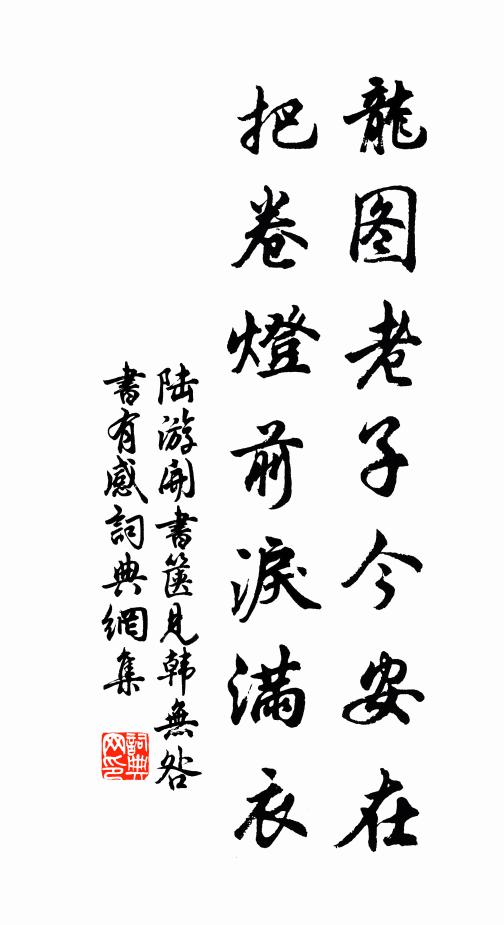 龍图老子今安在
把卷燈前淚滿衣
陆游開書篋見韩無咎
書有感詞典網集
詞典
网印